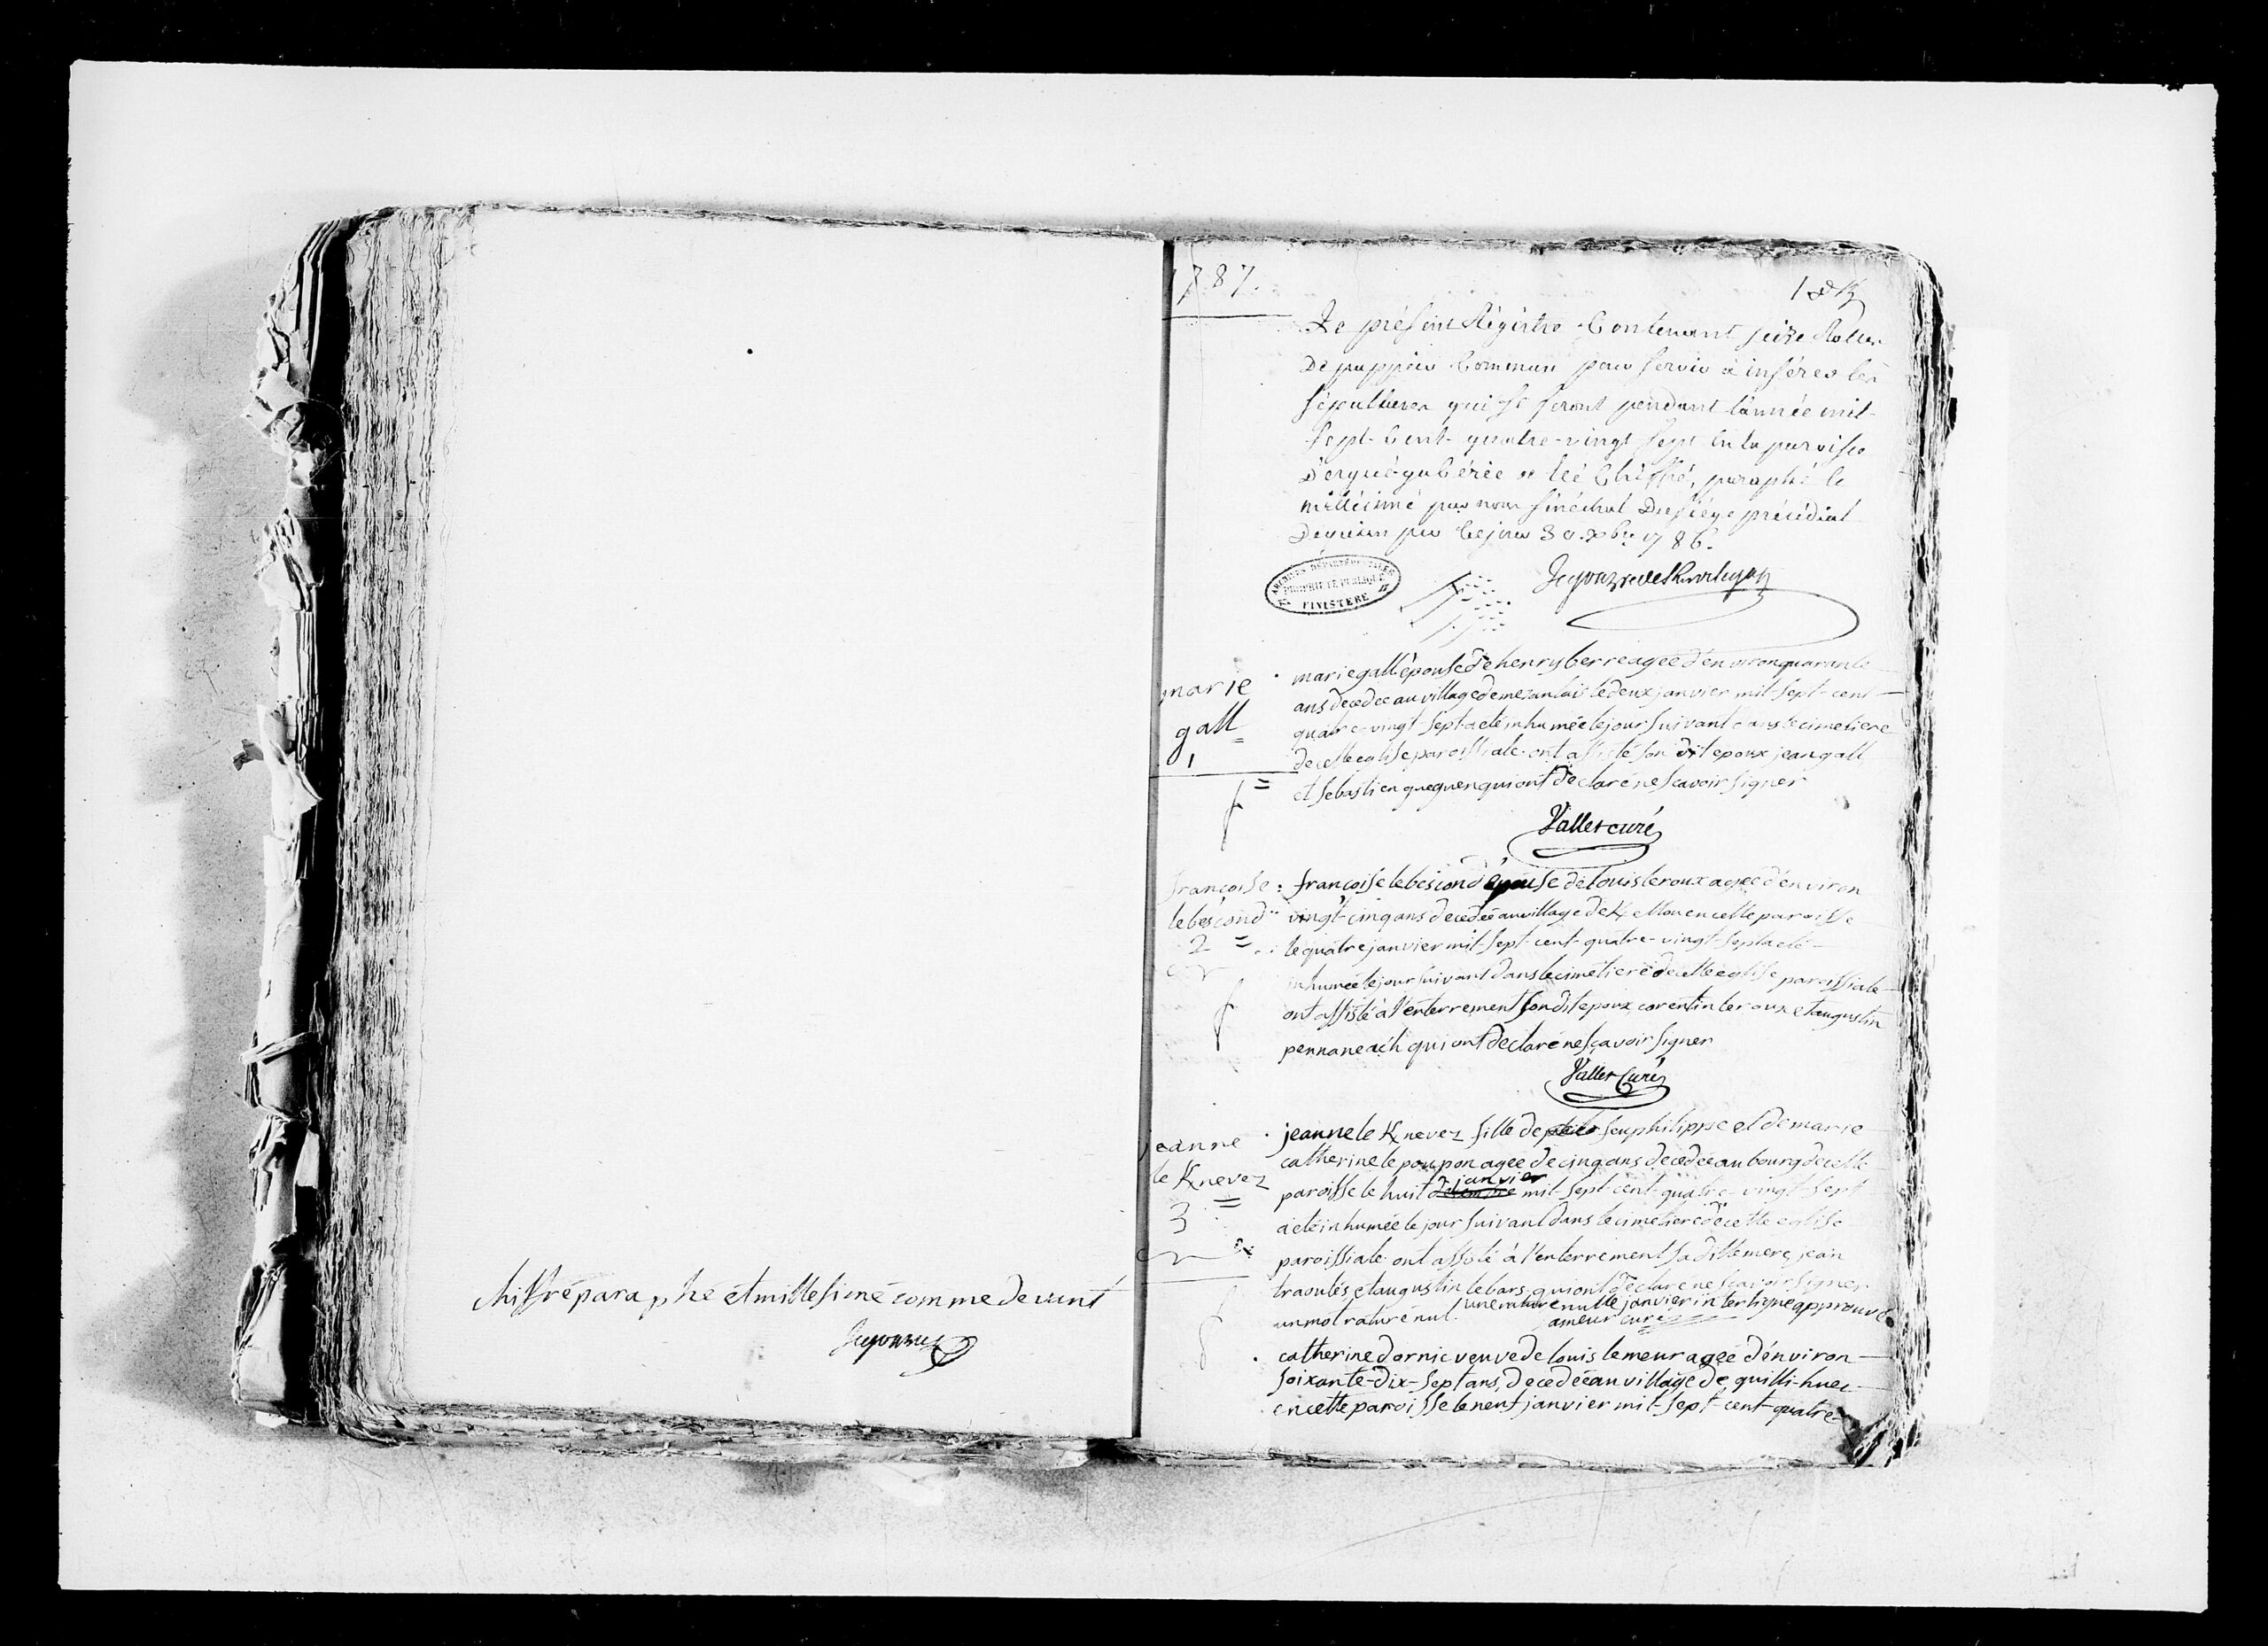 chiffré paraphé et millesimé comme devant
1787.
Le présent Régistre Contenant seize Rolles
De pappier Commun pour servir a insérer les
sépultures qui se feront pendant l'année mil
sept-Cent-quatre-vingt sept en la paroisse
D'ergué-gabéric a été Chiffré, paraphé et
millésimé par nous sénéchal Du siége présidial
De quimper Ce jour 30 xbre 1786.
ARCHIVES DÉPARTEMENTALES
PROPRIÉTÉ PUBLIQUE
FINISTERE
marie
gall
1
marie gall épouse de henry berre agée d'environ quarante
ans decedee au village de le deux janvier mil-sept-cent
quatre-vingt-sept a eté inhumée le jour suivant dans le cimetiere
de cette eglise paroissiale. ont assisté son dit epoux jean gall
et sebastien gueguen qui ont declaré ne scavoir signer
Vallet curé
françoise
le bescond
2
françoise le bescond épouse de louis le roux agée d'environ
vingt-cinq ans decedée au village de en cette paroisse
le quatre janvier mil-sept-cent-quatre-vingt-sept a eté
inhumée le jour suivant dans le cimetiere de cette eglise paroissiale
ont assisté à l'enterrement son dit epoux, corentin le roux et augustin
pennaneach qui ont declaré ne sçavoir signer
Vallet Curé
jeanne
le Knevez
3
jeanne le Knevez fille de feu philippe et de marie
catherine le poupon agée de cinq ans decedée au bourg de cette
janvier
paroisse le huit mil-sept-cent-quatre-vingt-sept
a eté inhumée le jour suivant dans le cimetiere de cette eglise
paroissiale. ont assisté à l'enterrement sa ditte mere, jean
traoulés et augustin le bars, qui ont declaré ne sçavoir signer
un mot raturé nul. une rature nulle janvier interligne approuvé
ameur curé
catherine dornic veuve de louis le meur agée d'environ
soixante-dix-sept ans, decedée au village de quilli-huec
en cette paroisse le neuf janvier mil-sept-cent-quatre-